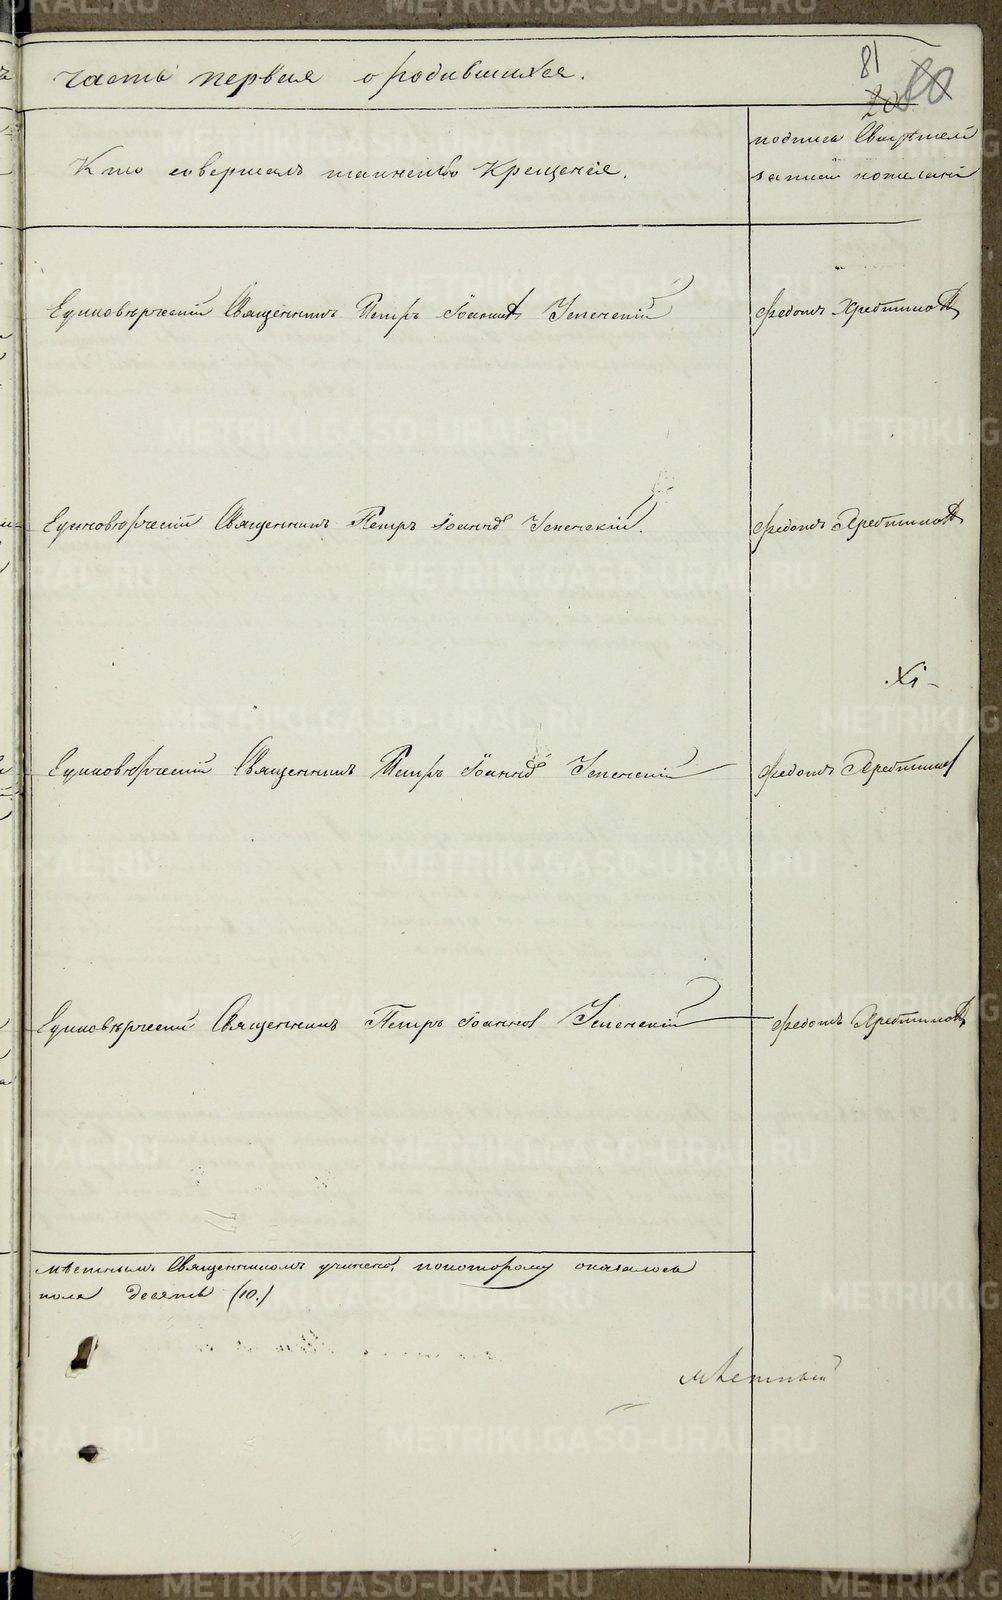 часть первая о родившихся.
81
80
Кто совершалъ таинство Крещенія.
подпись Свидѣтелей
записи по желанію
Единовѣрческій Священникъ Петръ Іоанновъ
Федотъ Хребтиковъ
Единовѣрческій Священникъ Петръ Іоанновъ
Федотъ Хребтиковъ
XI
Единовѣрческій Священникъ Петръ Іоанновъ
Федотъ Хребтиковъ
Единовѣрческій Священникъ Петръ Іоанновъ
Федотъ Хребтиковъ
мѣстнымъ Священникомъ учинено, по которому оказалось
пола десять (10.)
мѣстный
METRIKI.GASO-URAL.RU